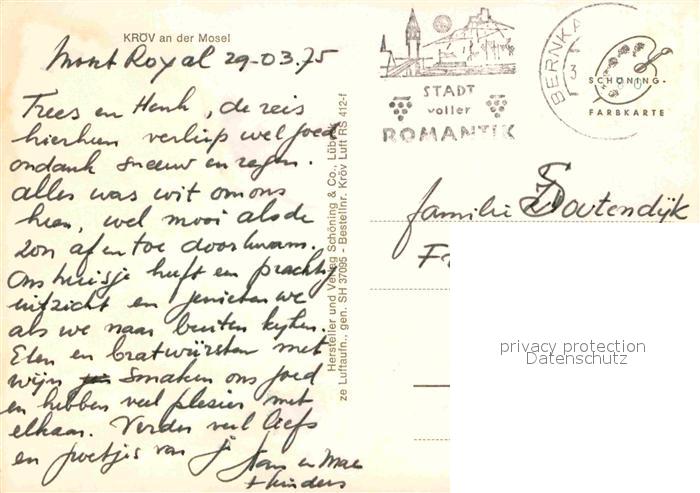 KRÖV an der Mosel
Mont Royal 29-03.75
Trees en Henk, de reis
hierheen verliep wel goed
ondank sneeuw en regen.
alles was wit om ons
heen, wel mooi als de
zon af en toe doorkwam.
Ons huisje heeft een prachtig
uitzicht en genieten we
als we naar buiten kijken.
Eten en bratwürsten met
wijn smaken ons goed
en hebben veel plesier met
elkaar. Verder veel liefs
en groetjes van
+ kinders
Hersteller und Verlag Schöning & Co., Lübeck
ze Luftaufn., gen. SH 37095 - Bestellnr. Kröv Luft RS 412-f
STADT
voller
ROMANTIK
BERNKA
3
SCHÖNING·
FARBKARTE
familie
privacy protection
Datenschutz